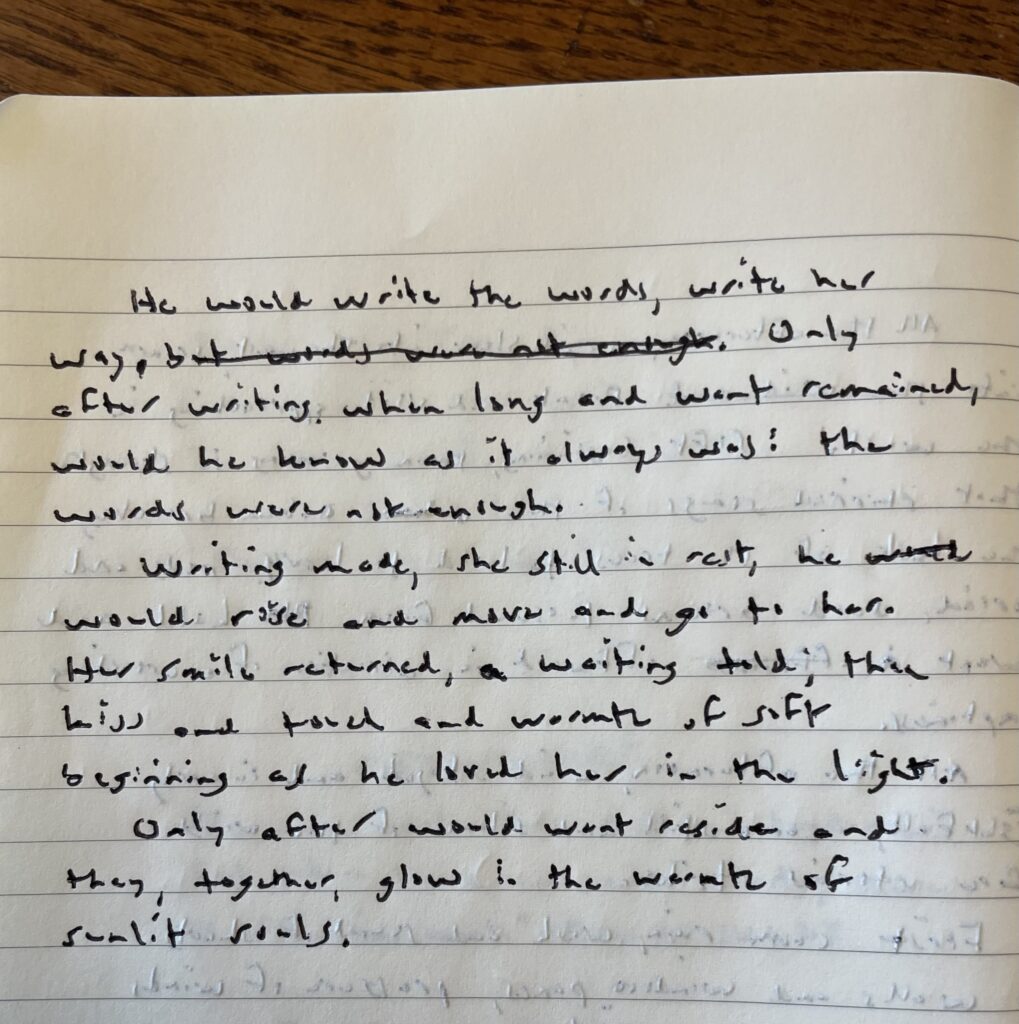 He would write the words, write her
way, but words were not enough. Only
after writing, when long and want remained,
would he know as it always was: the
words were not enough.
Writing made, she still in rest, he would
would rise and move and go to her.
Her smile returned, a waiting told; then
kiss and touch and warmth of soft
beginning as he loved her in the light.
Only after would want reside and
they, together, glow in the warmth of
sunlit souls.